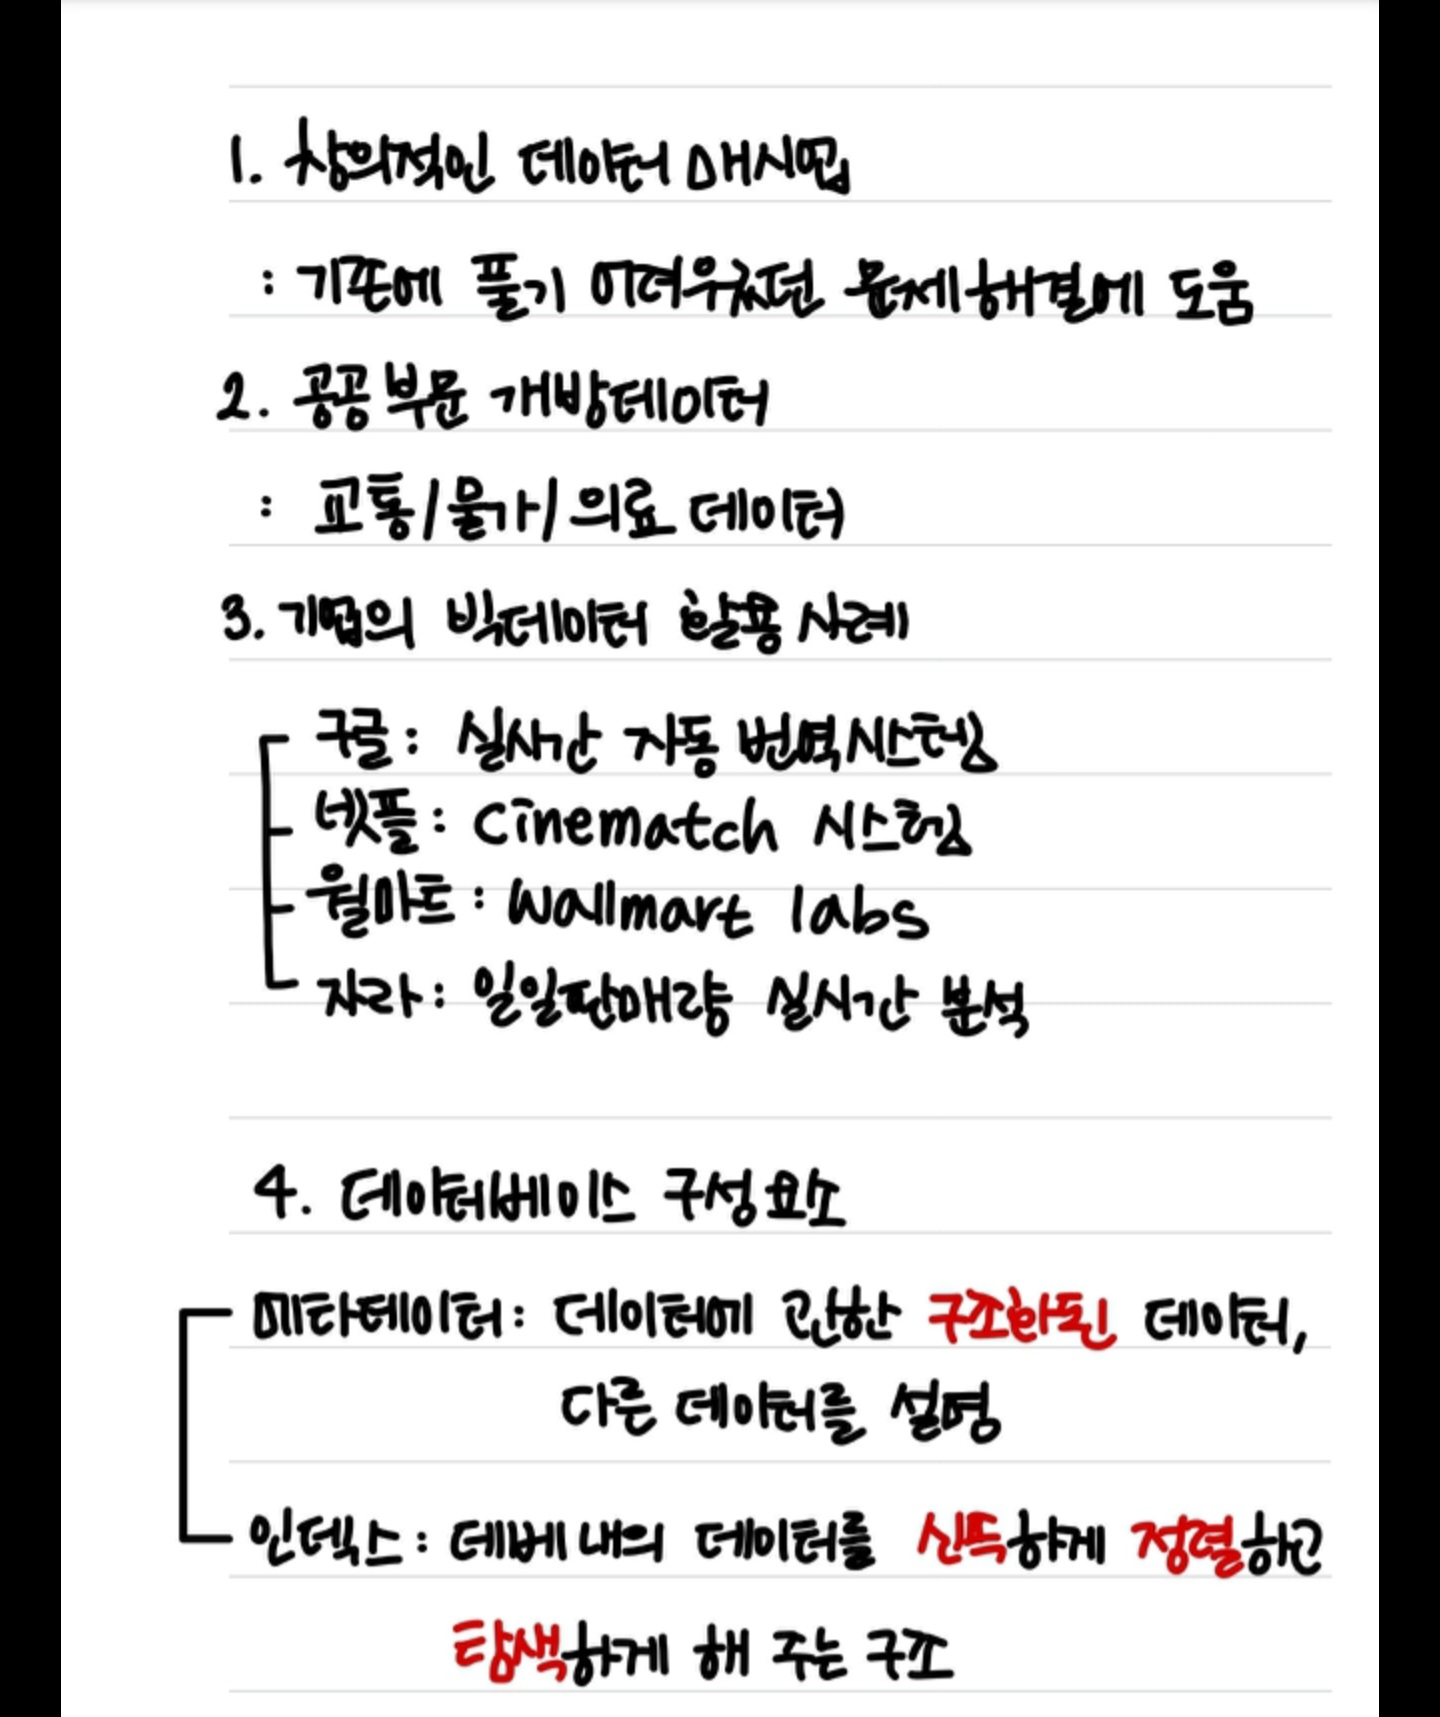 1. 창의적인 데이터 매시업
: 기존에 풀기 어려우었던 문제해결에 도움
2. 공공부문 개방데이터
: 교통/물가/의료 데이터
3. 기업의 빅데이터 활용사례
구글: 실시간 자동 번역시스템
넷플: Cinematch 시스템
월마트: Wallmart labs
자라: 일일판매량 실시간 분석
4. 데이터베이스 구성요소
메타데이터: 데이터에 관한 구조화된 데이터,
다른 데이터를 설명
인덱스: 데베 내의 데이터를 신득하게 정렬하고
탐색하게 해 주는 구조